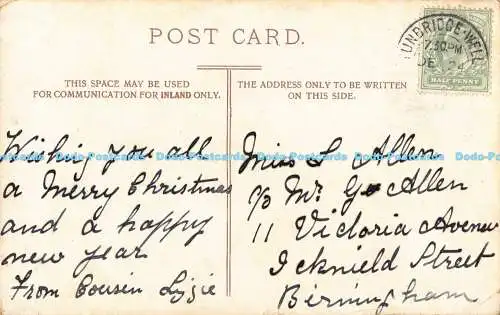 POST CARD.
THIS SPACE MAY BE USED
FOR COMMUNICATION FOR INLAND ONLY.
THE ADDRESS ONLY TO BE WRITTEN
ON THIS SIDE.
TUNBRIDGE-WELLS
7.30PM
DE 24
HALF PENNY
Wishing you all
a Merry Christmas
and a happy
new year
From Cousin Lizzie
Miss L Allen
c/o Mr G Allen
11 Victoria Avenue
Icknield Street
Birmingham
Dodo-Postcard Dodo-Postcard Dodo-Postcard Dodo-Postcard Dodo-Postcard